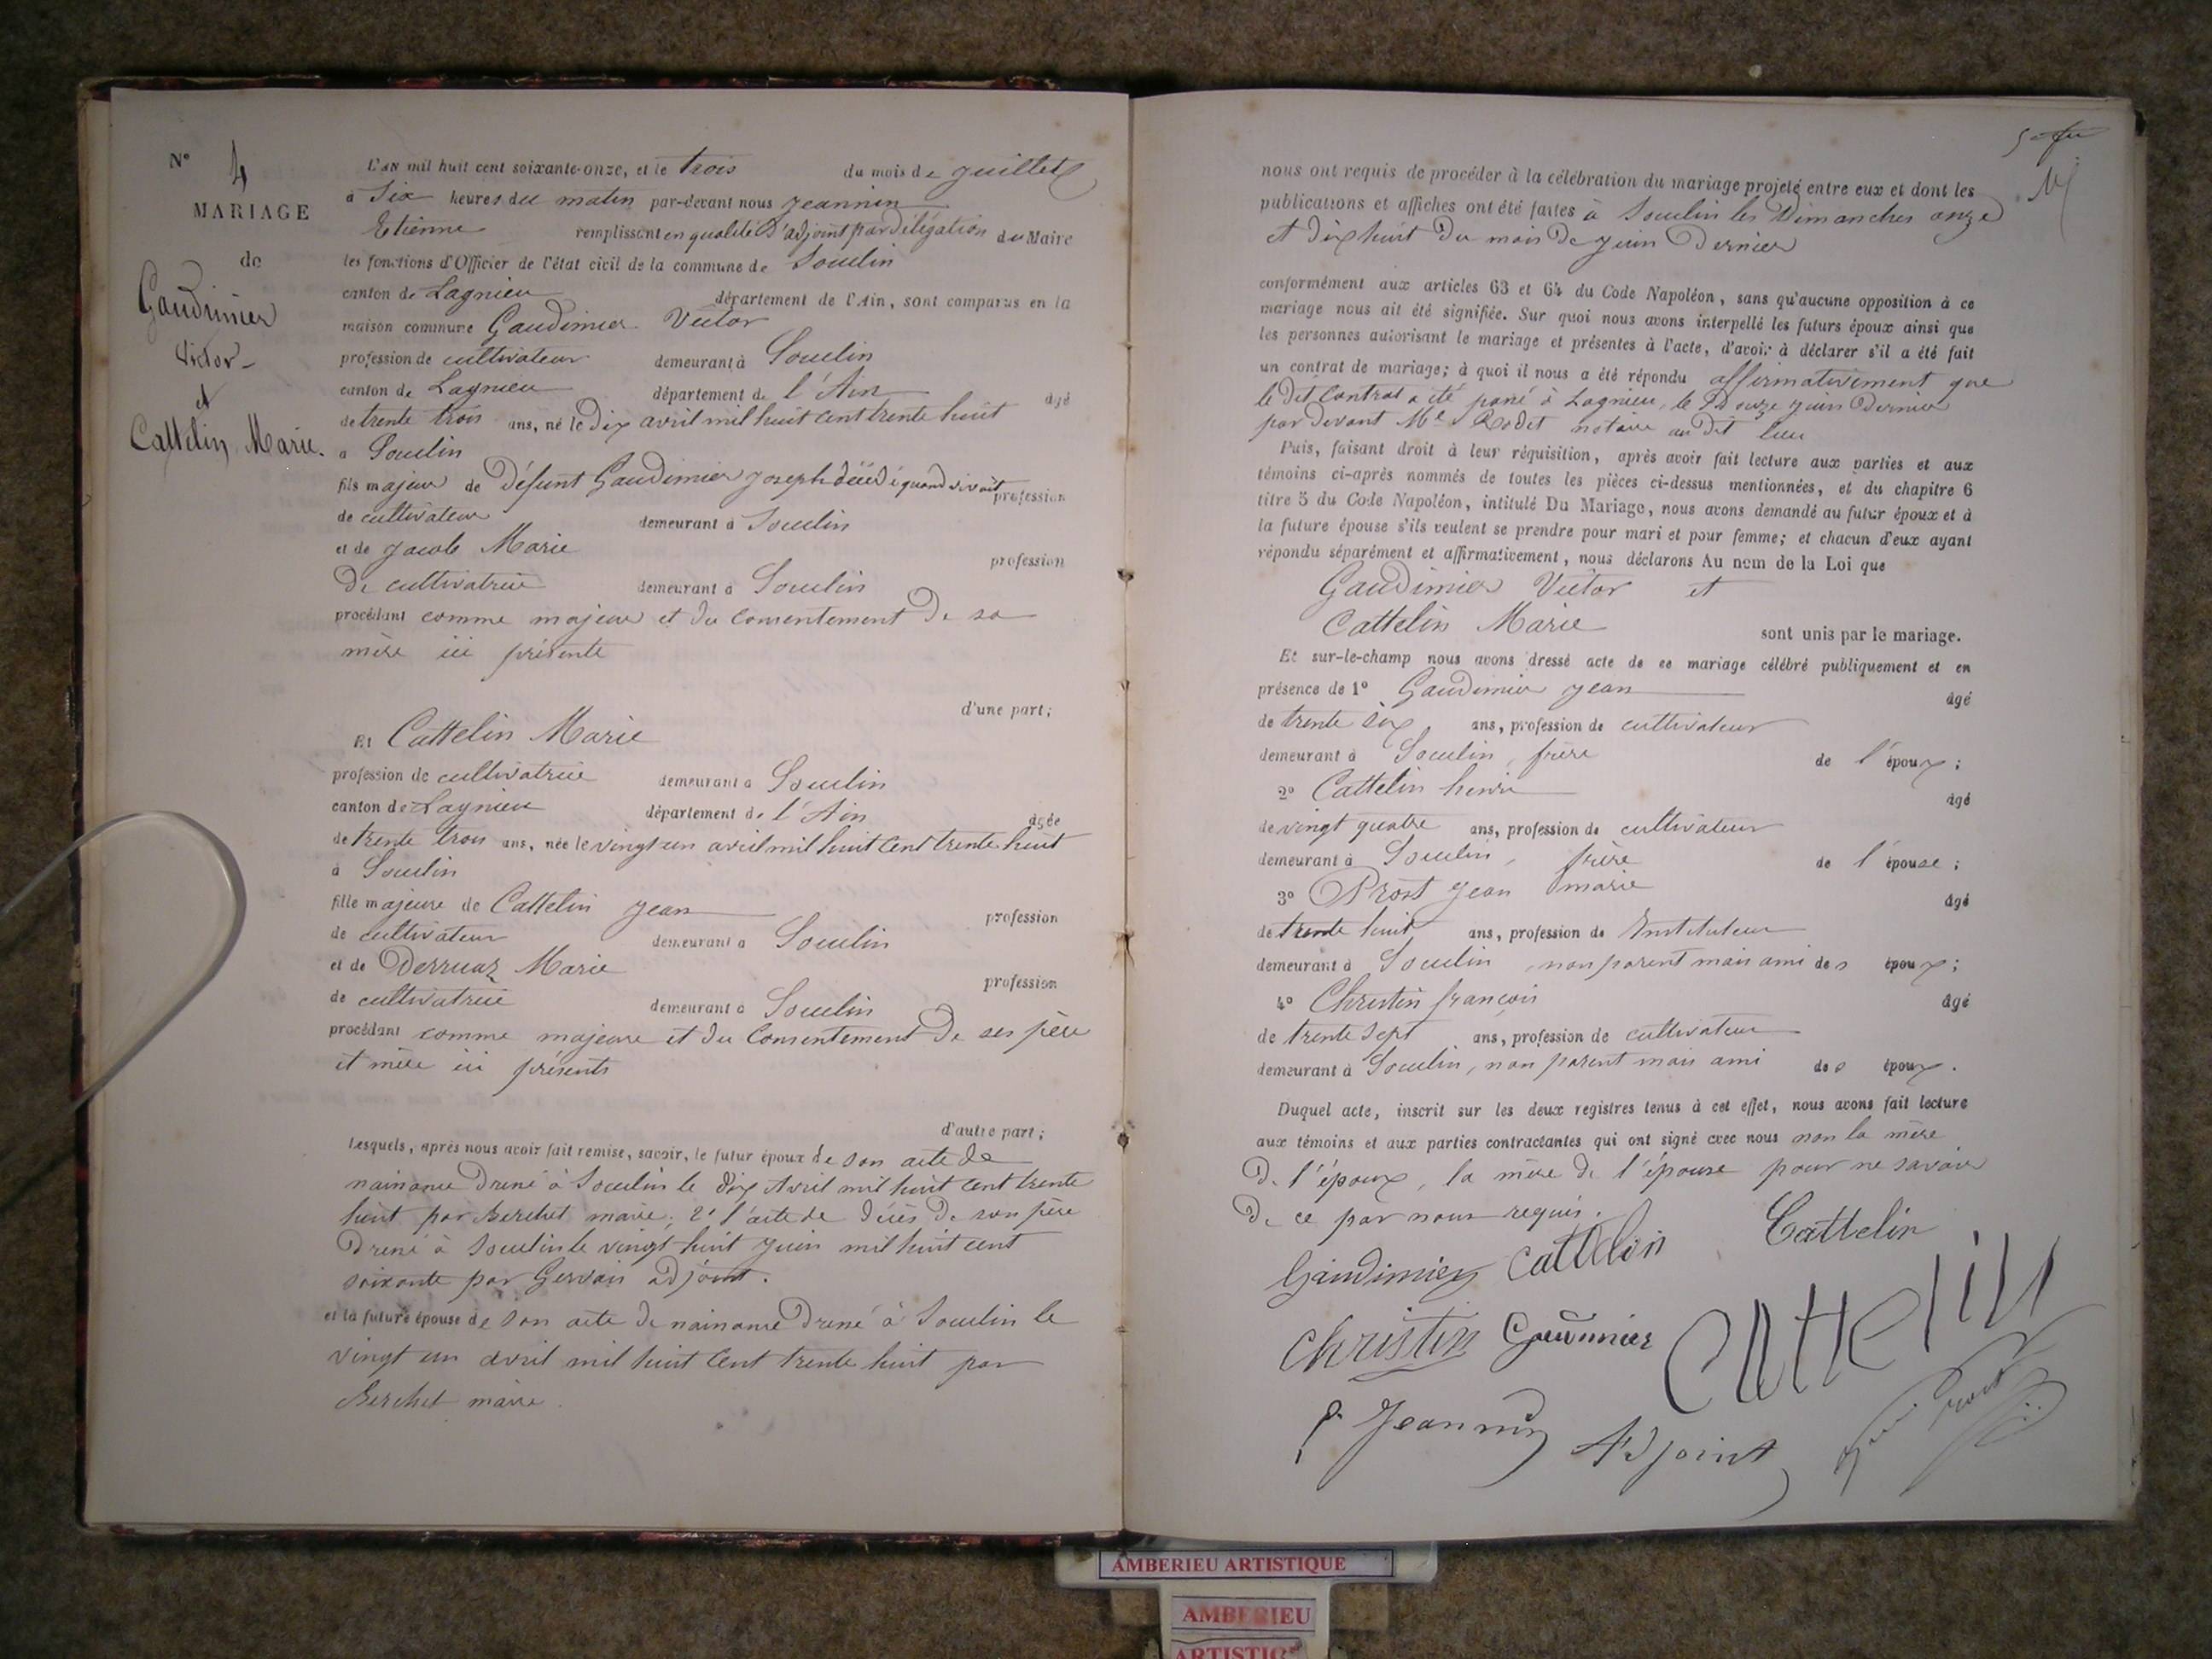 N° 4
MARIAGE
de
Gaudimier
Victor
et
Cattelin Marie.
L'an mil huit cent soixante-onze, et le trois du mois de juillet
à Six heures du matin par-devant nous Jeannin
Etienne remplissant en qualité d'adjoint par délégation du Maire
les fonctions d'Officier de l'état civil de la commune de Souclin
canton de Lagnieu département de l'Ain, sont comparus en la
maison commune Gaudimier Victor
profession de cultivateur demeurant à Souclin
canton de Lagnieu département de l'Ain âgé
de trente trois ans, né le dix avril mil huit cent trente huit
à Souclin
fils majeur de défunt Gaudimier Joseph décédé quand vivait profession
de cultivateur demeurant à Souclin
et de Jacob Marie profession
de cultivatrice demeurant à Souclin
procédant comme majeur et du consentement de sa
mère ici présente
d'une part;
Et Cattelin Marie
profession de cultivatrice demeurant à Souclin
canton de Lagnieu département de l'Ain âgée
de trente trois ans, née le vingt un avril mil huit cent trente huit
à Souclin
fille majeure de Cattelin Jean profession
de cultivateur demeurant à Souclin
et de Derruaz Marie profession
de cultivatrice demeurant à Souclin
procédant comme majeure et du consentement de ses père
et mère ici présents
d'autre part;
Lesquels, après nous avoir fait remise, savoir, le futur époux de son acte de
naissance dressé à Souclin le dix Avril mil huit cent trente
huit par Berchet maire; 2° l'acte de décès de son père
dressé à Souclin le vingt huit juin mil huit cent
soixante par Gervais adjoint.
et la future épouse de son acte de naissance dressé à Souclin le
vingt un avril mil huit cent trente huit par
Berchet maire.
nous ont requis de procéder à la célébration du mariage projeté entre eux et dont les
publications et affiches ont été faites à Souclin les Dimanches onze
et dix huit du mois de juin dernier
conformément aux articles 63 et 64 du Code Napoléon, sans qu'aucune opposition à ce
mariage nous ait été signifiée. Sur quoi nous avons interpellé les futurs époux ainsi que
les personnes autorisant le mariage et présentes à l'acte, d'avoir à déclarer s'il a été fait
un contrat de mariage; à quoi il nous a été répondu affirmativement que
le dit contrat a été passé à Lagnieu, le douze juin dernier
par devant Me Rodet notaire au dit lieu
Puis, faisant droit à leur réquisition, après avoir fait lecture aux parties et aux
témoins ci-après nommés de toutes les pièces ci-dessus mentionnées, et du chapitre 6
titre 5 du Code Napoléon, intitulé Du Mariage, nous avons demandé au futur époux et à
la future épouse s'ils veulent se prendre pour mari et pour femme; et chacun d'eux ayant
répondu séparément et affirmativement, nous déclarons Au nom de la Loi que
Gaudimier Victor et
Cattelin Marie
sont unis par le mariage.
Et sur-le-champ nous avons dressé acte de ce mariage célébré publiquement et en
présence de 1° Gaudimier Jean âgé
de trente six ans, profession de cultivateur
demeurant à Souclin, frère de l'époux;
2° Cattelin henri âgé
de vingt quatre ans, profession de cultivateur
demeurant à Souclin, frère de l'épouse;
3° Prost Jean marie âgé
de trente huit ans, profession de Instituteur
demeurant à Souclin, non parent mais ami des époux;
4° Christin françois âgé
de trente sept ans, profession de cultivateur
demeurant à Souclin, non parent mais ami des époux.
Duquel acte, inscrit sur les deux registres tenus à cet effet, nous avons fait lecture
aux témoins et aux parties contractantes qui ont signé avec nous non la mère
de l'époux, la mère de l'épouse pour ne savoir
de ce par nous requis.
Gaudimier Cattelin Cattelin
Christin Gaudimier Cattelin
Jeannin Adjoint Prost
AMBERIEU ARTISTIQUE
AMBERIEU
ARTISTIQUE